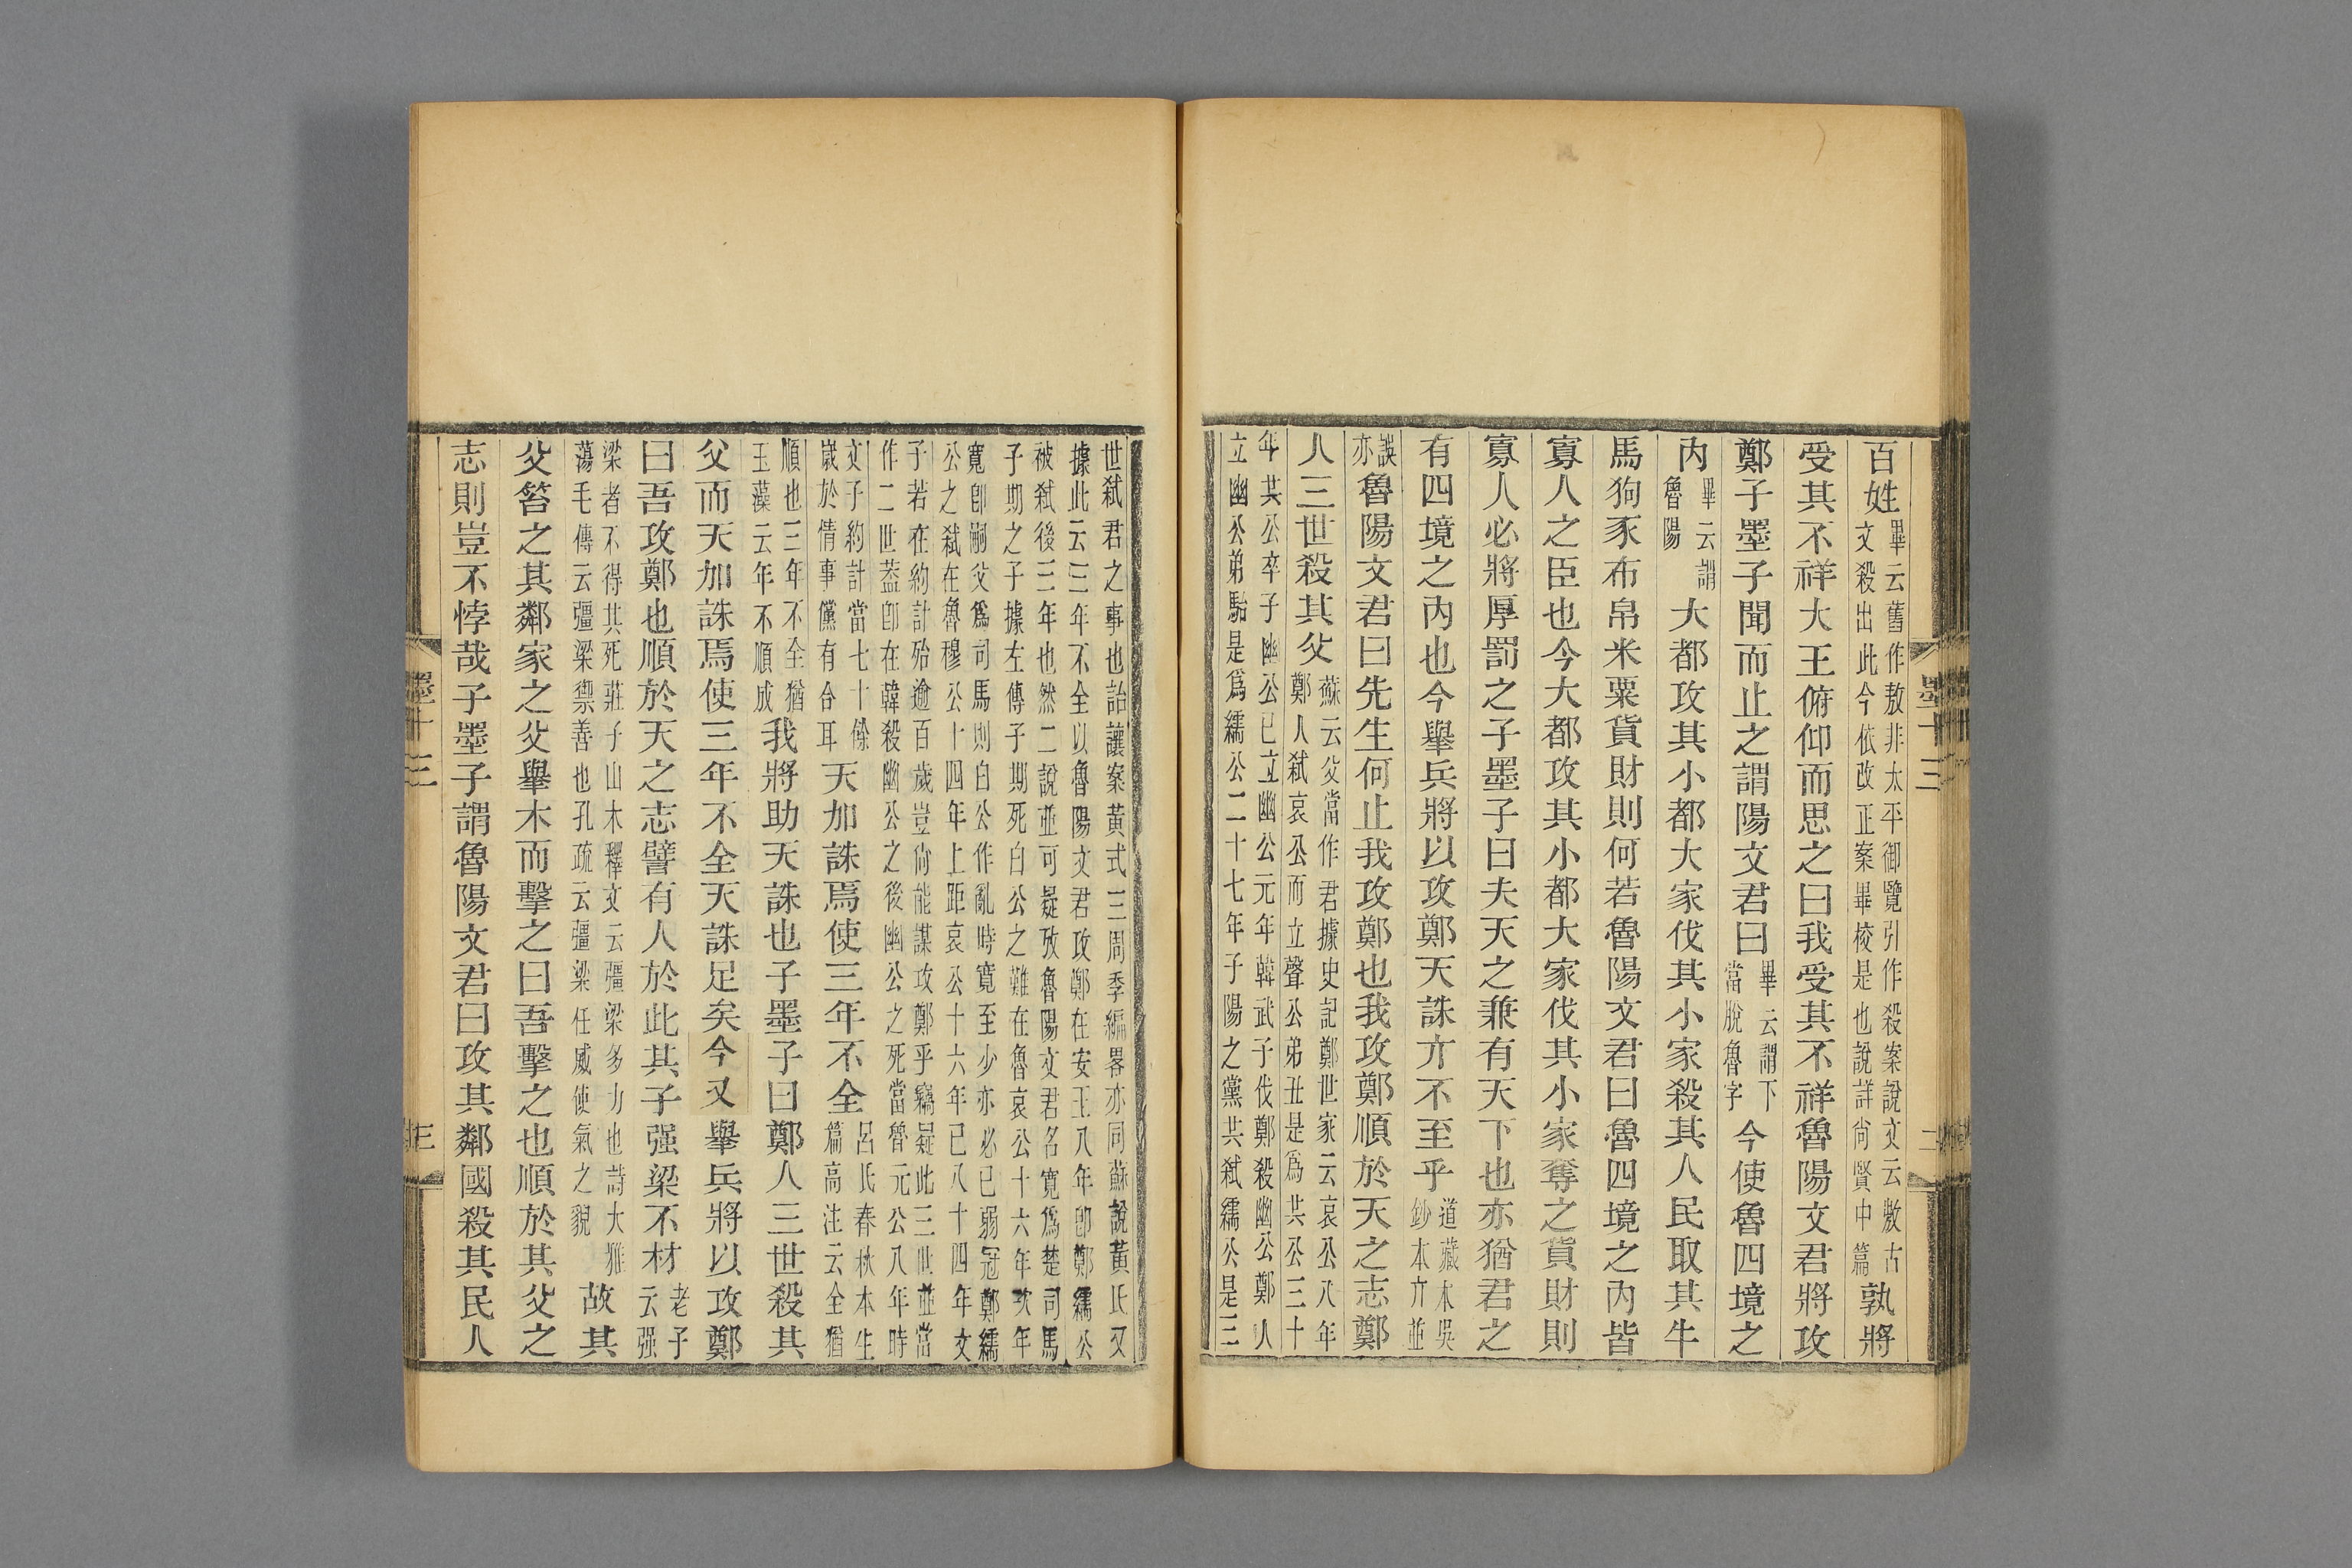 百姓畢云舊作敖非太平御覽引作殺案說文云敷古文殺出此今依改正案畢校是也說詳尚賢中篇孰將
受其不祥大王俯仰而思之曰我受其不祥魯陽文君將攻
鄭子墨子聞而止之謂陽文君曰畢云謂下當脫魯字今使魯四境之
內畢云謂魯陽大都攻其小都大家伐其小家殺其人民取其牛
馬狗豕布帛米粟貨財則何若魯陽文君曰魯四境之內皆
寡人之臣也今大都攻其小都大家伐其小家奪之貨財則
寡人必將厚罰之子墨子曰夫天之兼有天下也亦猶君之
有四境之內也今舉兵將以攻鄭天誅亓不至乎道藏本吳鈔本亓並
誤亦魯陽文君曰先生何止我攻鄭也我攻鄭順於天之志鄭
人三世殺其父蘇云父當作君據史記鄭世家云哀公八年鄭人弑哀公而立聲公弟丑是爲共公三十
年共公卒子幽公已立幽公元年韓武子伐鄭殺幽公鄭人立幽公弟駘是爲繻公二十七年子陽之黨共弑繻公是三
墨十三
二
世弑君之事也詒讓案黃式三周季編畧亦同蘇說黃氏又據此云三年不全以魯陽文君攻鄭在安王八年卽鄭繻公
被弑後三年也然二說並可疑攷魯陽文君名寬爲楚司馬子期之子據左傳子期死白公之難在魯哀公十六年次年
寬卽嗣父爲司馬則白公作亂時寬至少亦必已弱冠鄭繻公之弑在魯穆公十四年上距哀公十六年已八十四年文
子若在約計殆逾百歲豈尚能謀攻鄭乎竊疑此三世並當作二世葢卽在韓殺幽公之後幽公之死當魯元公八年時
文子約計當七十餘歲於情事儻有合耳天加誅焉使三年不全呂氏春秋本生篇高注云全猶
順也三年不全猶玉藻云年不順成我將助天誅也子墨子曰鄭人三世殺其
父而天加誅焉使三年不全天誅足矣今又舉兵將以攻鄭
曰吾攻鄭也順於天之志譬有人於此其子强梁不材老子云强
梁者不得其死莊子山木釋文云彊梁多力也詩大雅蕩毛傳云彊梁禦善也孔疏云彊梁任威使氣之貌故其
父笞之其鄰家之父舉木而擊之曰吾擊之也順於其父之
志則豈不悖哉子墨子謂魯陽文君曰攻其鄰國殺其民人
墨十三
三